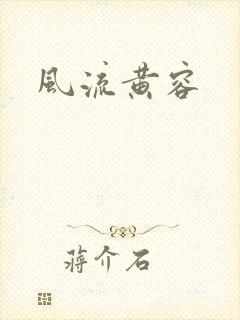 風流黄容
蒋介石